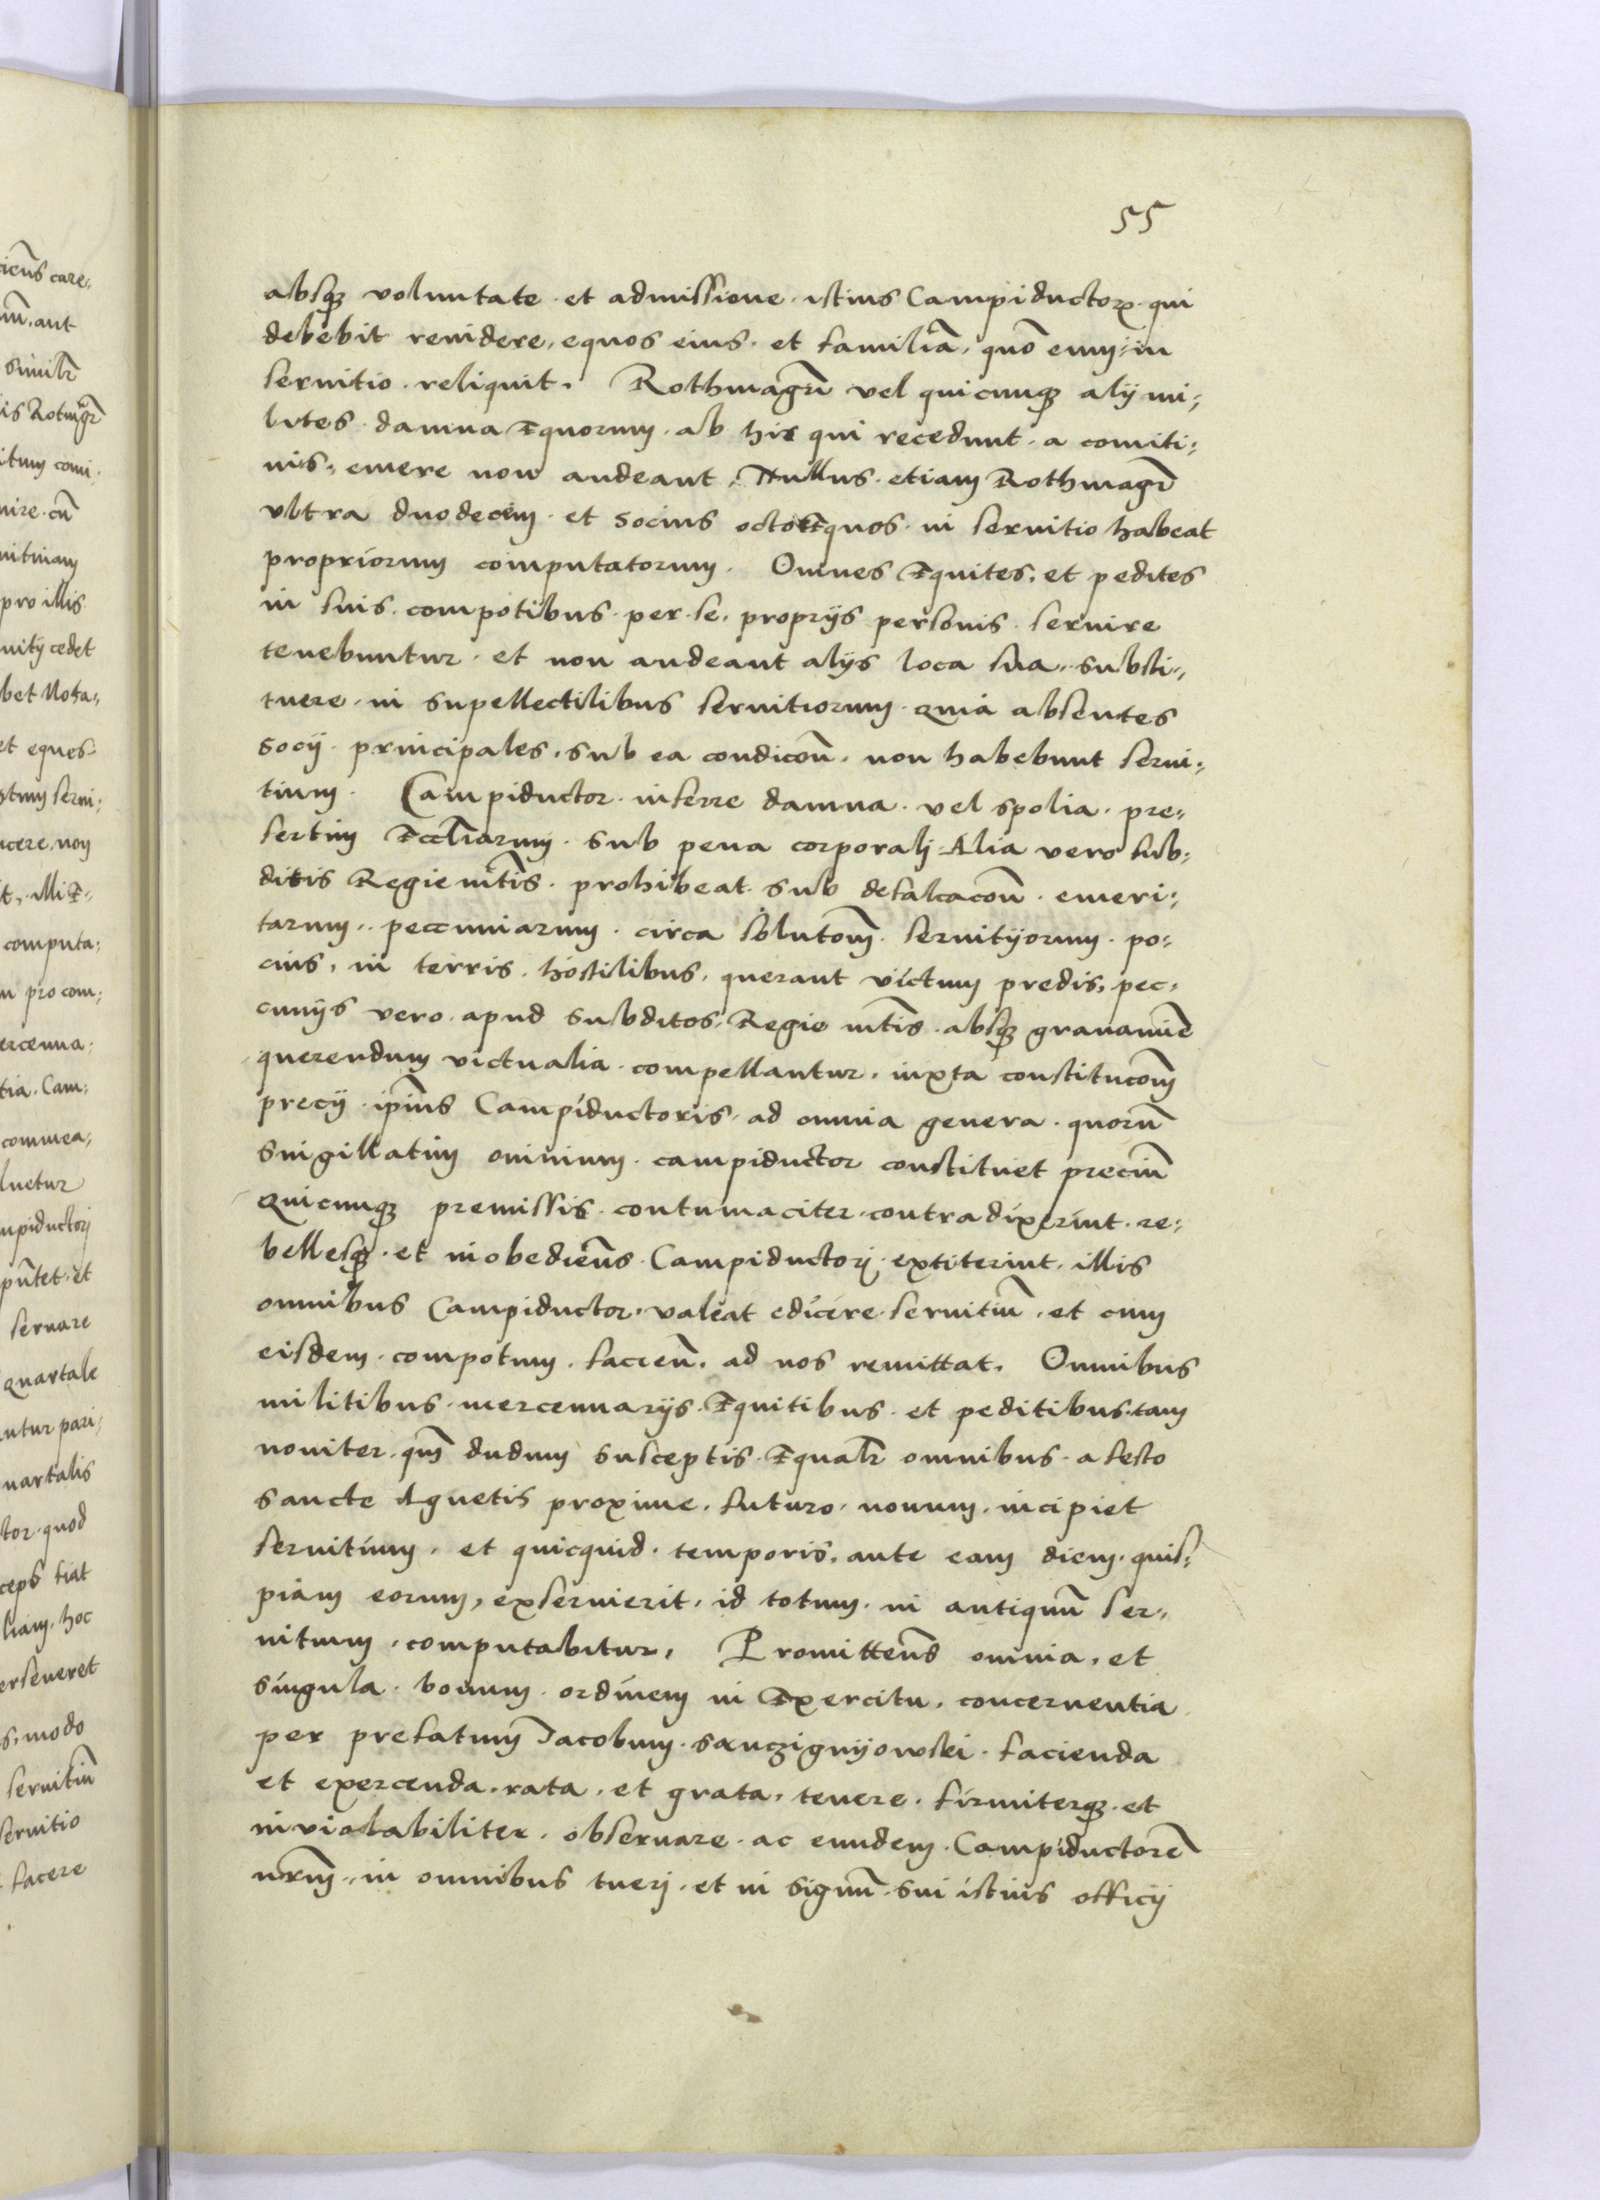 55
absqȝ voluntate et admissione istius Campiductorꝝ qui
debebit revidere, equos eius et familiā, quō enim in
servitio reliquit. Rothmagr̄i vel quicunqȝ alij mi-
lites damna Equorum ab his qui recedunt a comiti-
vis, emere non audeant. Nullus etiam Rothmagr̄
ultra duodecim et socius octo Equos in servitio habeat
propriorum computatorum. Omnes Equites, et pedites
in suis compotibus per se, proprijs personis servire
tenebuntur et non audeant alijs loca sua substi-
tuere in supellectilibus servitiorum quia absentes
socij principales, sub ea condicōn̄, non habebunt servi-
tium. Campiductor inferre damna vel spolia pre-
sertim Eccl̄iarum sub pena corporali Alia vero sub-
ditis Regie mt̄is prohibeat sub defalcacōn̄ emeri-
tarum peccuniarum circa solutōm̄ servitijorum po-
cius, in terris hostilibus, querant victum predis, pec-
cunijs vero apud subditos Regie mt̄is absqȝ gravamīe
querendum victualia compellantur, iuxta constitucōm̄
precij ip̄ius Campiductoris, ad omnia genera quorū
singillatim omnium campiductor constituet preciū
Quicunqȝ premissis contumaciter contradixerint re-
bellesqȝ et inobediēns Campiductori extiterint illis
omnibus Campiductor valeat edicere servitiū, et cum
eisdem compotum facieñ, ad nos remittat. Omnibus
militibus mercennarijs Equitibus et peditibus tam
noviter qm̄ dudum susceptis Equalr̄ omnibus a festo
sancte Agnetis proxime futuro novum incipiet
servitium, et quicquid temporis, ante eam diem quis-
piam eorum, exservierit, id totum in antiquū ser-
vitium computabitur. Promittēns omnia, et
singula bonum ordinem in Exercitu, concernentia
per prefatum Jacobum Sanczignijowski facienda
et exercenda, rata et grata, tenere, firmiterqȝ et
inviolabiliter, observare ac eundem Campiductorē
nr̄m, in omnibus tueri et in signū sui istius officij